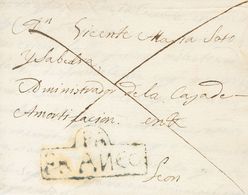 Dn Vicente Maria Soto
y Sabedra,
Administrador de la Caja de
Amortisacion. en la
FRANCO
Leon